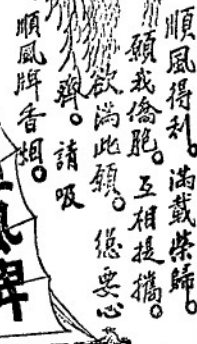 順風得利。滿載榮歸。
願我僑胞。互相提攜。
欲滿此願。總要心
齊。請吸
順風牌香烟。
風牌